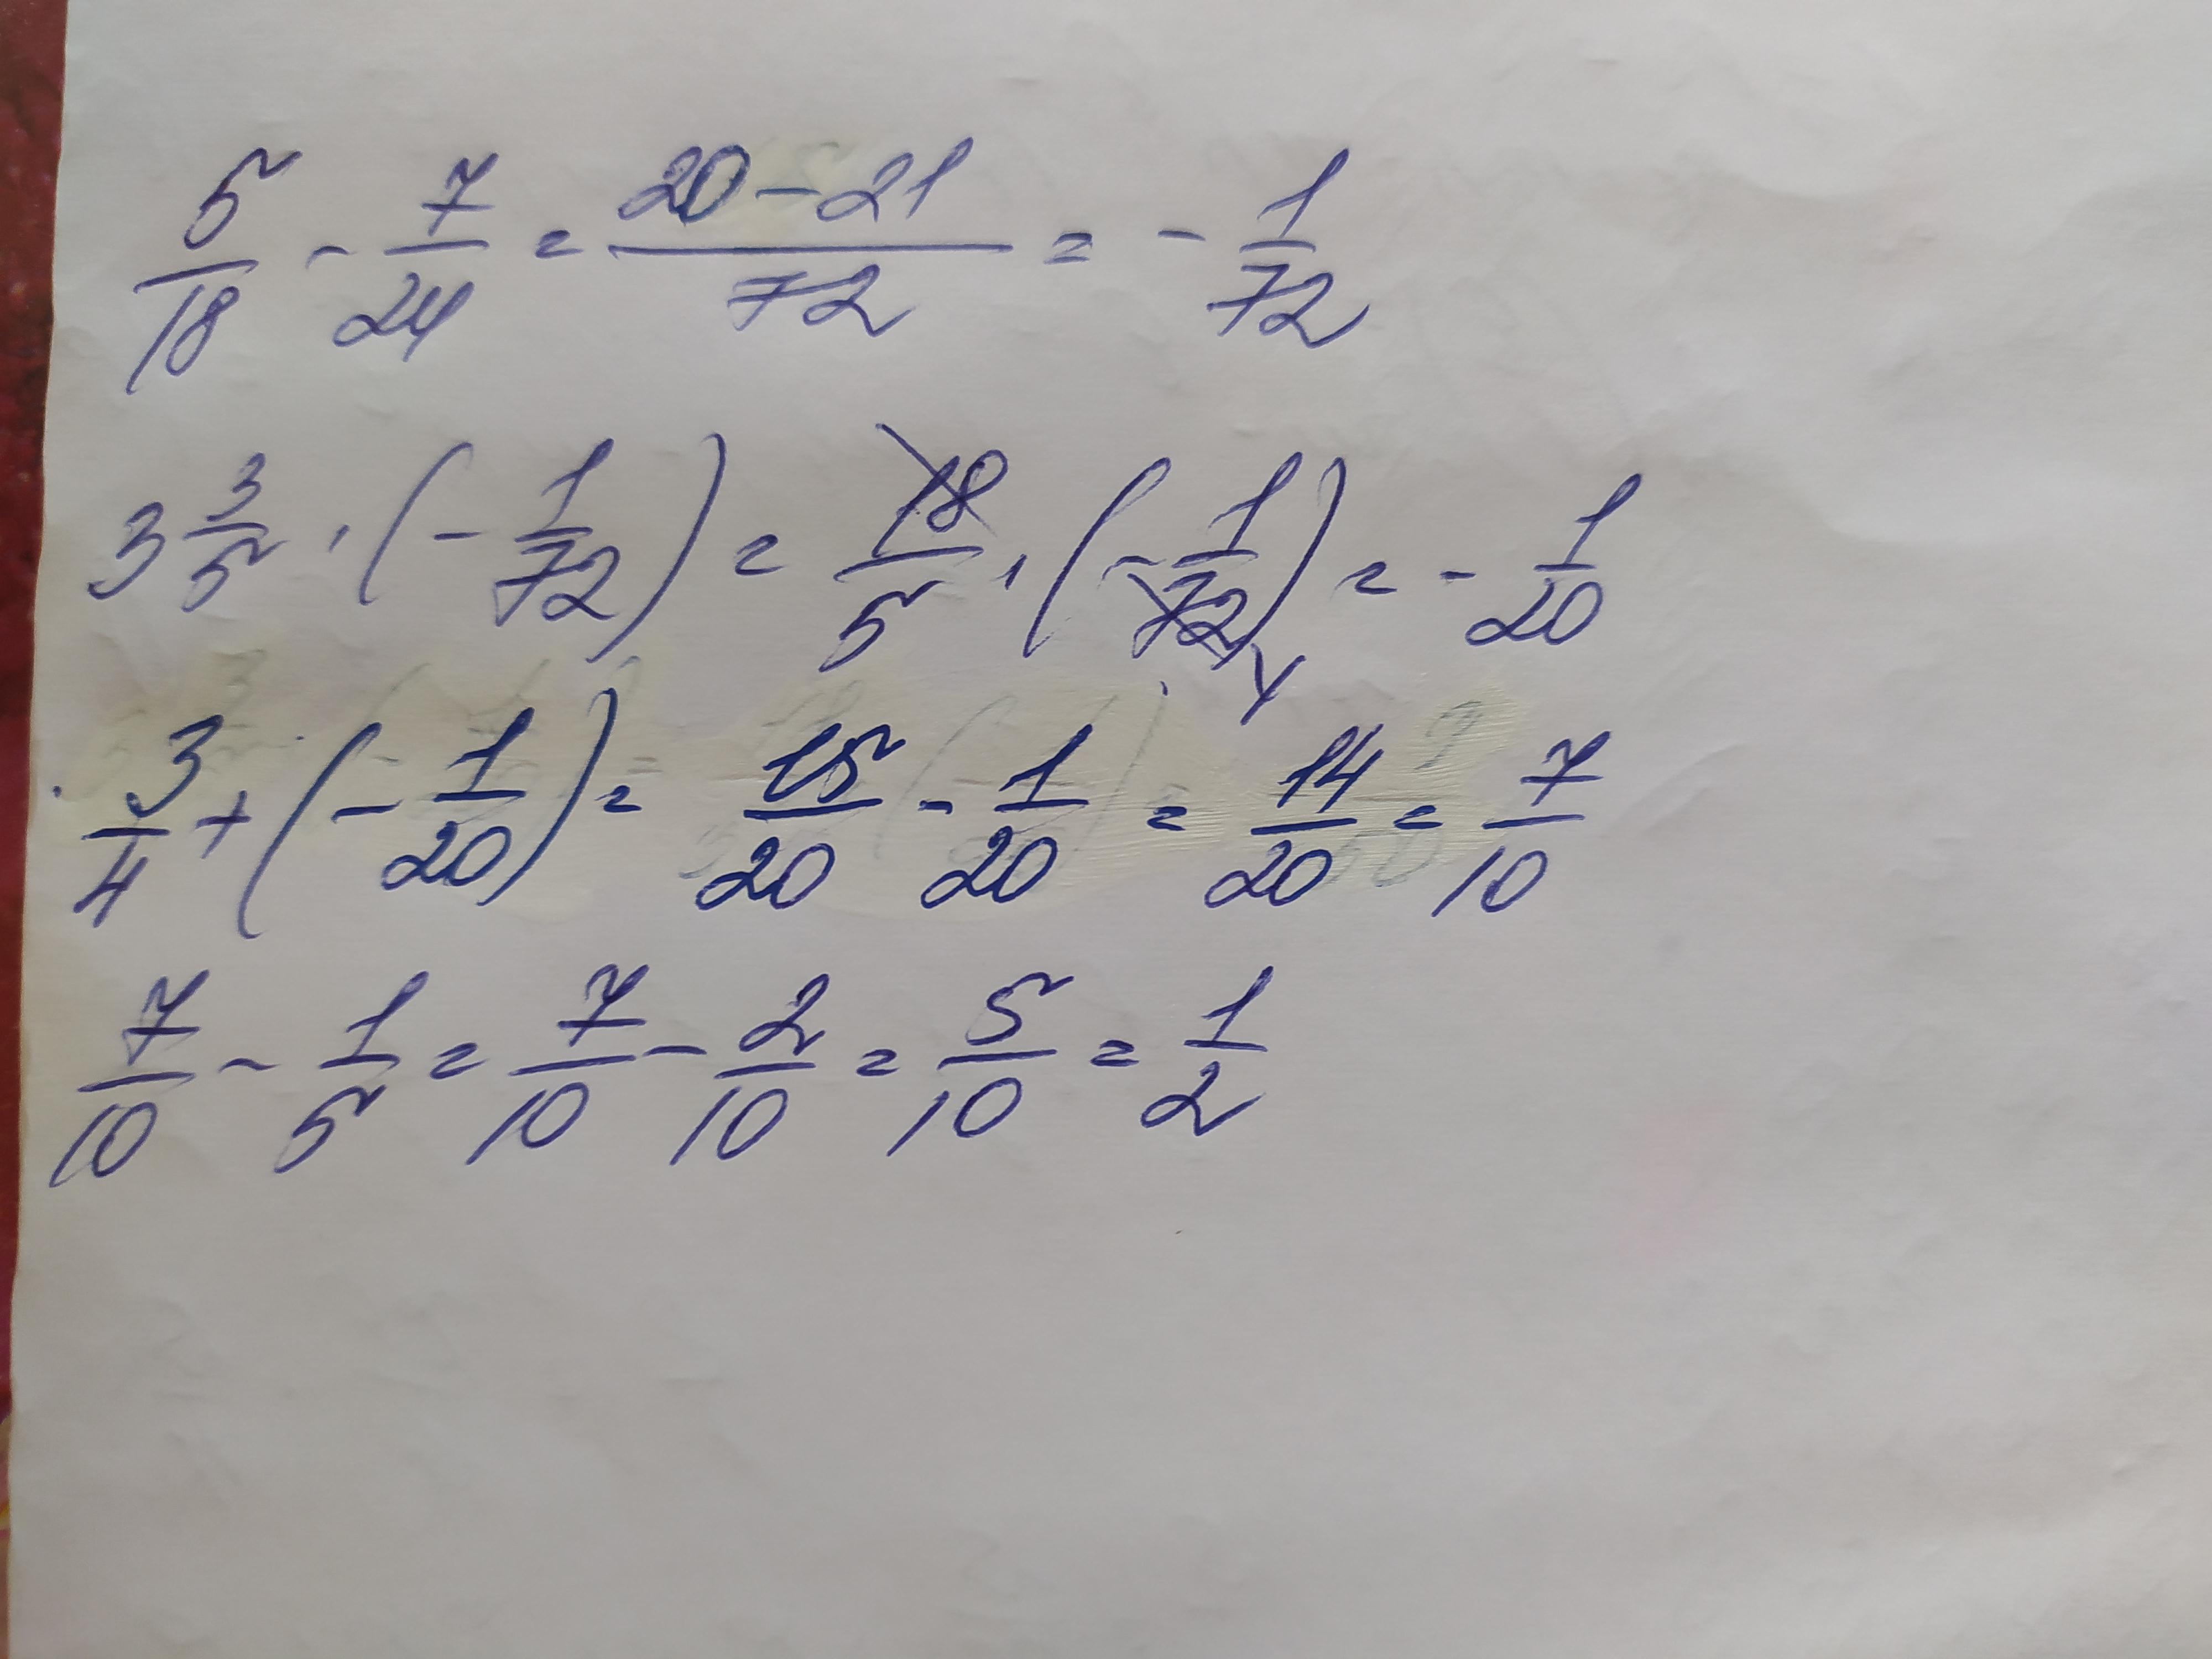 5/18 - 7/24 = (20-21)/72 = - 1/72
3 3/5 · (- 1/72) = 18/5 · (- 1/72) 4 = - 1/20
3/4 + (- 1/20) = 15/20 - 1/20 = 14/20 = 7/10
7/10 - 1/5 = 7/10 - 2/10 = 5/10 = 1/2